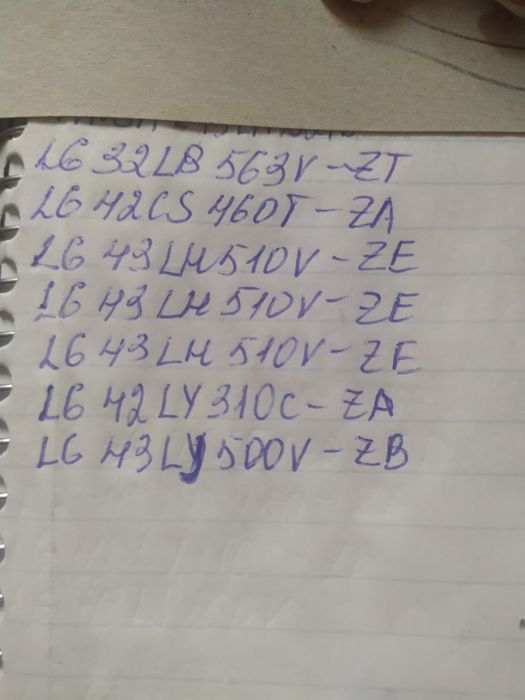 LG 32LB 563V-ZT
LG 42CS 460T-ZA
LG 43 LH 510V-ZE
LG 43 LH 510V-ZE
LG 43 LH 510V-ZE
LG 42 LY 310C-ZA
LG 43 LJ 500V-ZB